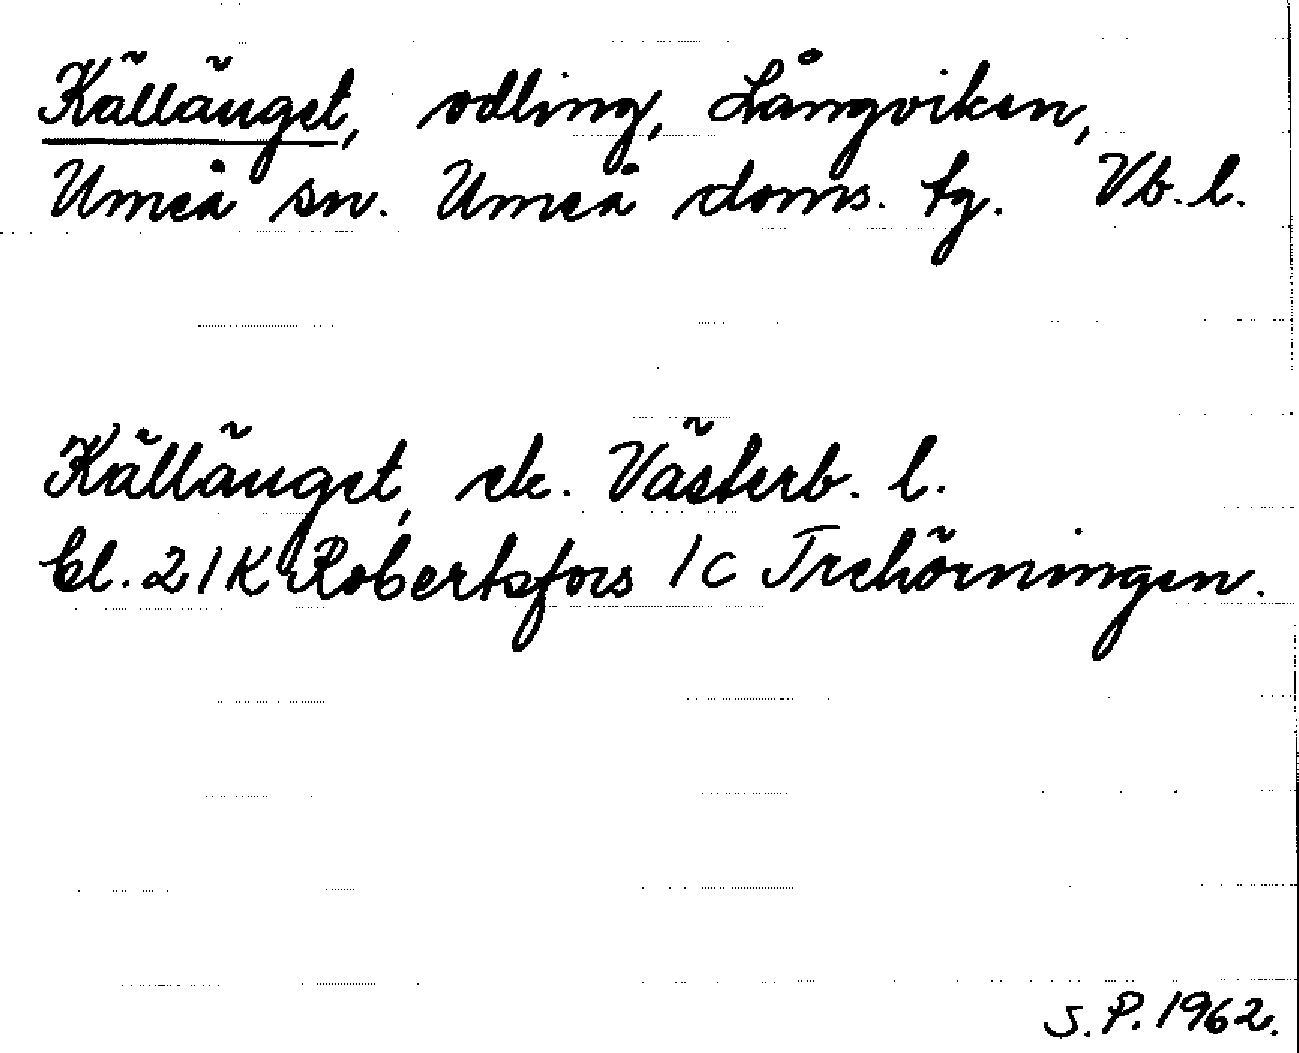 Källänget, odling, Långviken,
Umeå sn. Umeå doms. tg. Vb. l.
Källänget, ek. Västerb. l.
bl. 21K Robertsfors 1c Trehörningen.
S. P. 1962.